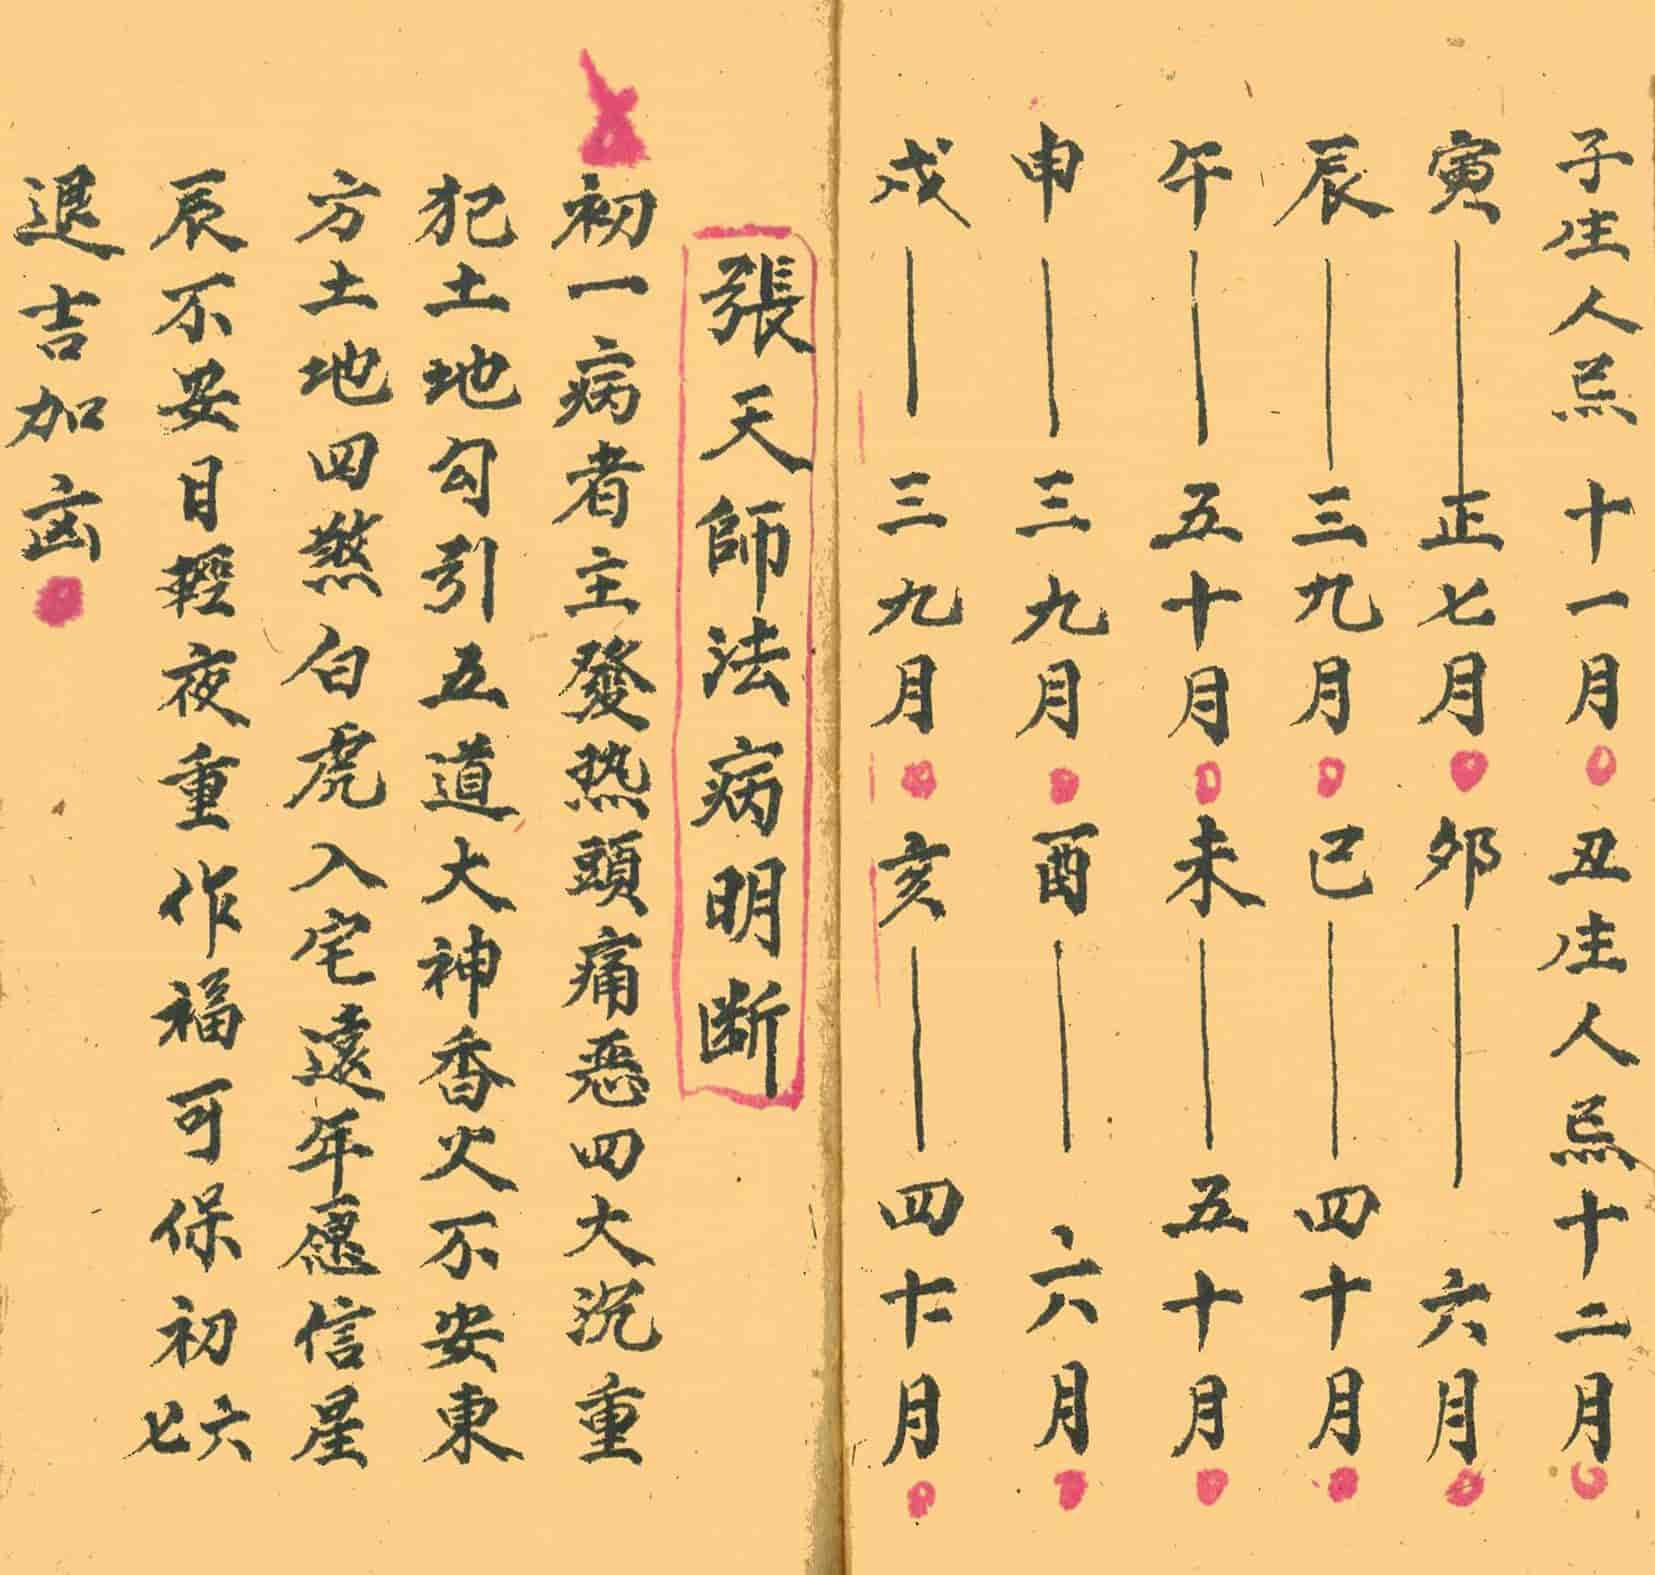 子生人忌十一月丑生人忌十二月
寅｜正七月卯｜六月
辰｜三九月巳｜四十月
午｜五十月未｜五十月
申｜三九月酉｜六月
戌｜三九月亥｜四十月
張天師法病明断
初一病者主發热頭痛恶四大沉重
犯土地勾引五道大神香火不安東
方土地四煞白虎入宅遠年愿信星
辰不安日輕夜重作福可保初六七
退吉加凶